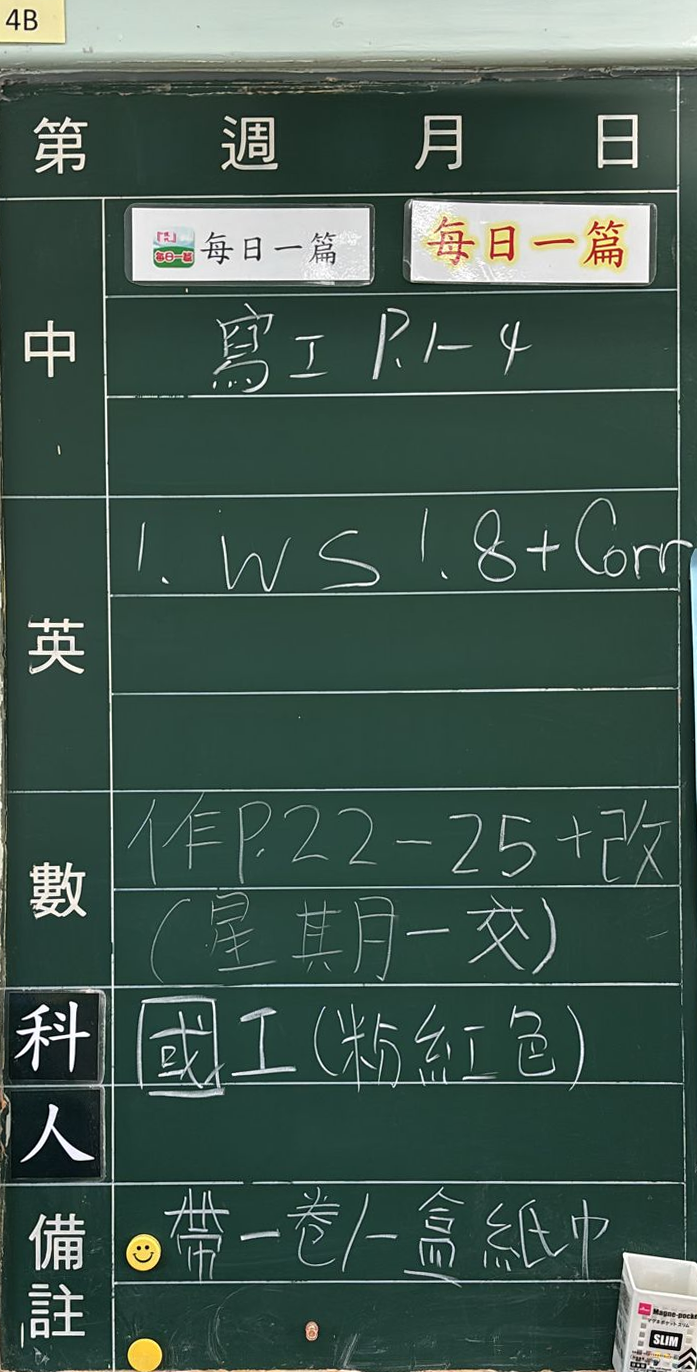 4B
第 週 月 日
中
每日一篇 每日一篇 每日一篇
寫工 P.1-4
英
1. WS 1.8+Corr
數
作P.22-25+改
(星期一交)
科
國工(粉紅色)
人
備註
帶一卷/一盒紙巾
Magne-pocket
SLIM